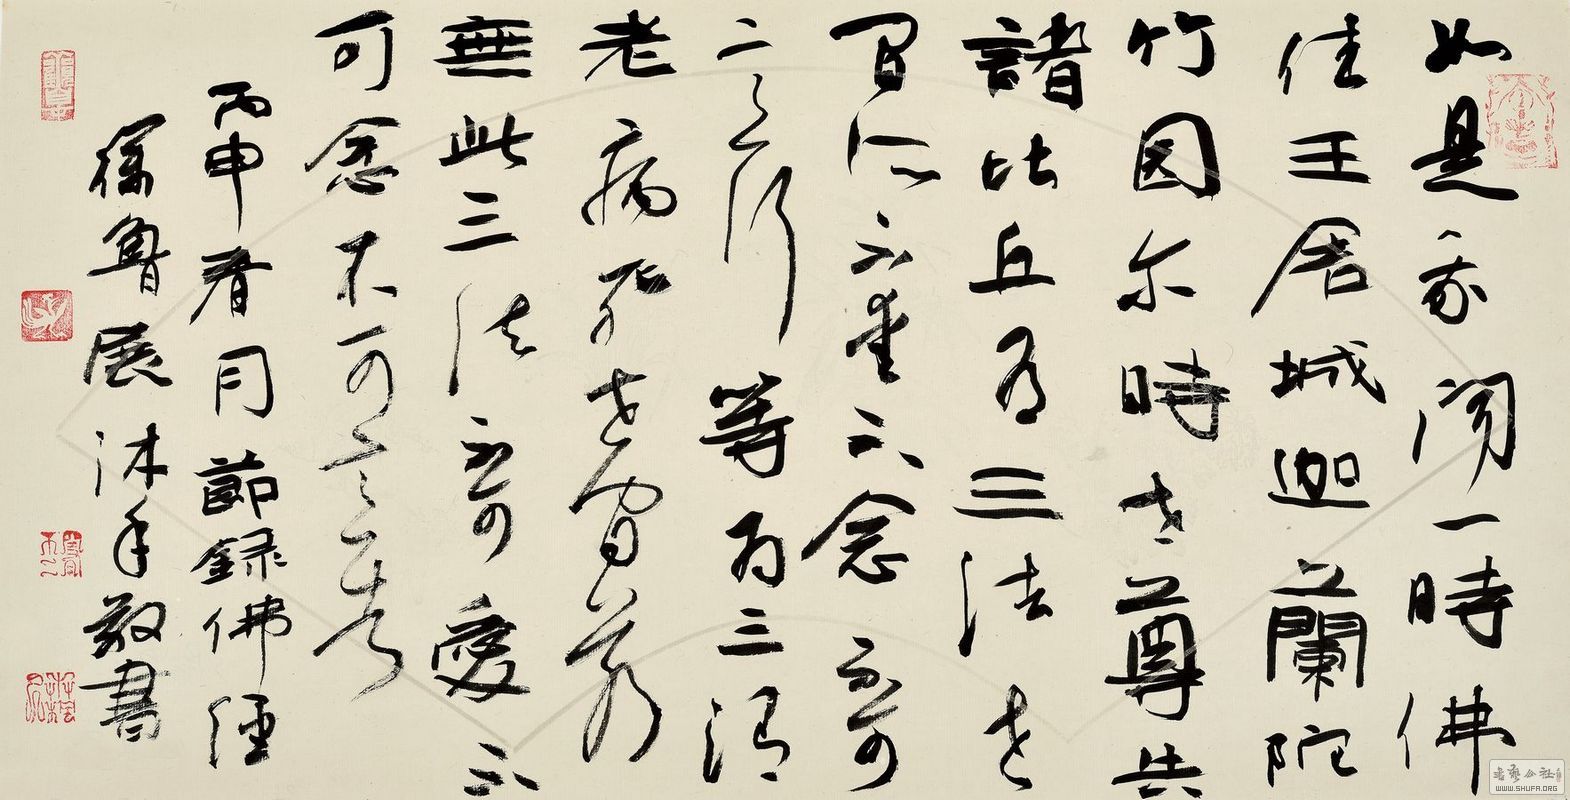 如是我闻一時佛
住王舍城迦蘭陀
竹园尔時世尊告
諸比丘有三法世
间所不爱不念不可
意何等为三谓
老病死世间若
無此三法不可愛不
可念不可意者
丙申春月節録佛經
魯展沐手敬書
书艺公社
WWW.SHUFA.ORG